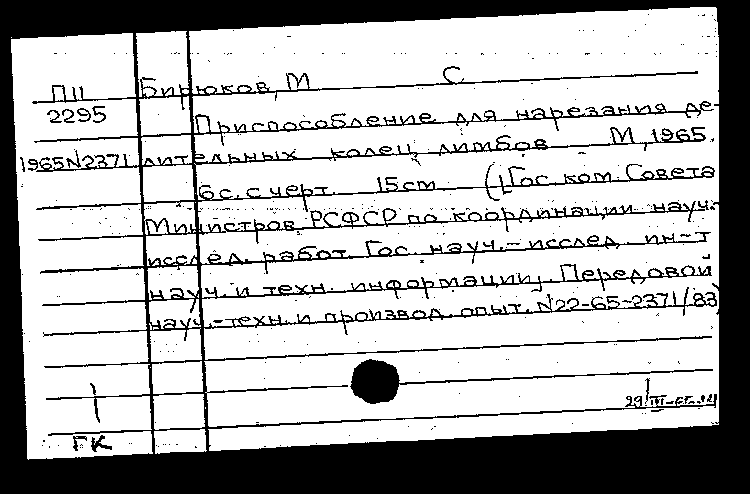 П11 Бирюков, М С
2295 Приспособление для нарезания де-
1965N2371 лительных колец лимбов М, 1965.
6с. с черт. 15см ([Гос. ком. Совета
Министров РСФСР по координации науч.-
исслед. работ. Гос. науч.-исслед. ин-т
науч. и техн. информации]. Передовой
науч.-техн. и производ. опыт. N22-65-2371/83)
ГК